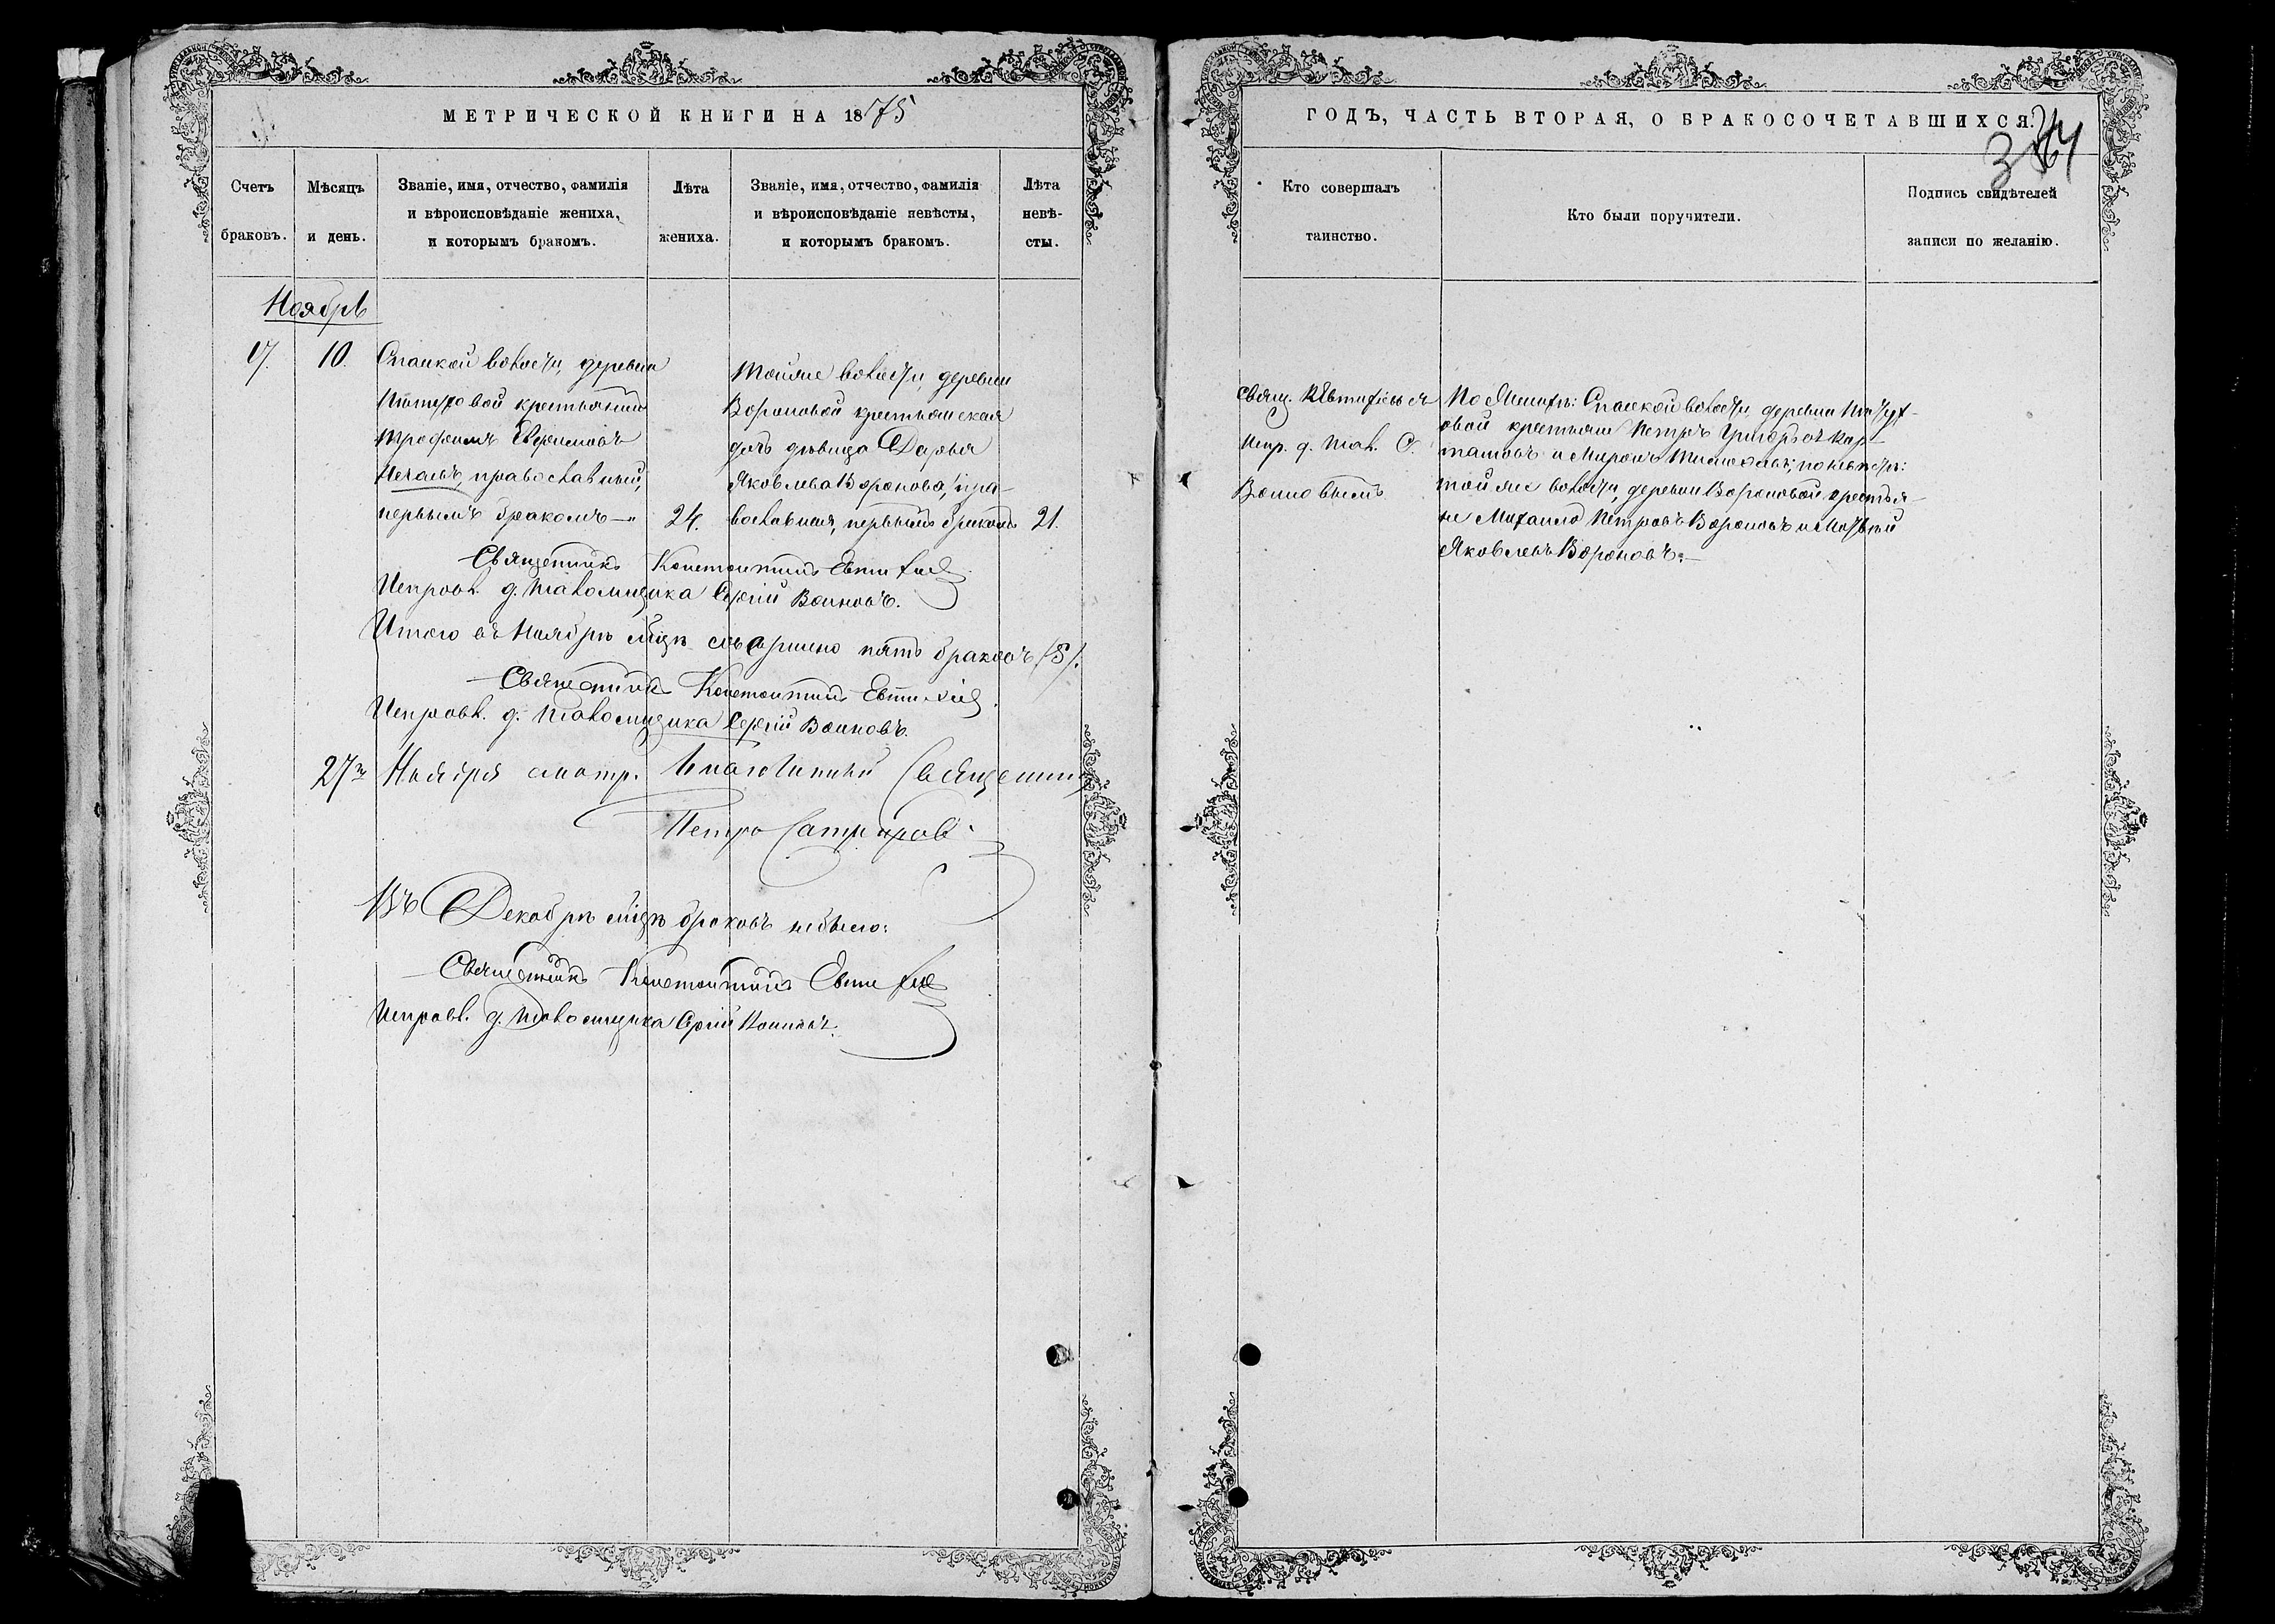 МЕТРИЧЕСКОЙ КНИГИ НА 1875
Счетъ браковъ.
Мѣсяцъ и день.
Званіе, имя, отчество, фамилія
и вѣроисповѣданіе жениха,
и которымъ бракомъ.
Лѣта жениха.
Званіе, имя, отчество, фамилія
и вѣроисповѣданіе невѣсты,
и которымъ бракомъ.
Лѣта невѣ-
сты.
Ноябрь
17. 10.
Спаской волости, деревни
крестьянинъ
Трофимъ
православный,
первымъ бракомъ 24.
Тойже волости деревни
Вороновой крестьянская
дочь дѣвица Дарья
Яковлева Воронова, пра-
вославная, первымъ бракомъ 21.
Священникъ Константинъ Евтихіев
Исправл. д. Псаломщика Сергій Воиновъ.
Итого въ Ноябрѣ мцѣ совершено пять браковъ (5).
Священникъ Константинъ Евтихіев
Исправл. д. Псаломщика Сергій Воиновъ.
27го Ноября смотр. Благочинный Священник
Петръ
Въ Декабрѣ мцѣ браковъ небыло.
Священникъ Константинъ Евтихіев
Исправл. д. Псаломщика Сергій Воиновъ.
ГОДЪ, ЧАСТЬ ВТОРАЯ, О БРАКОСОЧЕТАВШИХСЯ.
Кто совершалъ
таинство.
Кто были поручители.
Подпись свидѣтелей
записи по желанію.
Свящ. Евтихіевъ съ
Испр. д. Псал. С.
Воиновымъ
По женихѣ: Спаской волости, деревни
овой крестьяне Петръ Григорьевъ
и Миронъ по невѣстѣ:
тойже волости, деревни Вороновой крестья-
не Михаилъ Петровъ Вороновъ и Матвѣй
Яковлевъ Вороновъ.